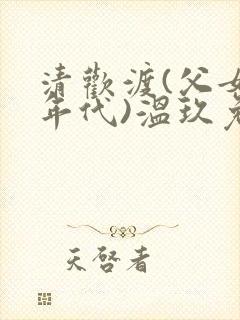 清歡渡(父女
年代)温玖
天啓者